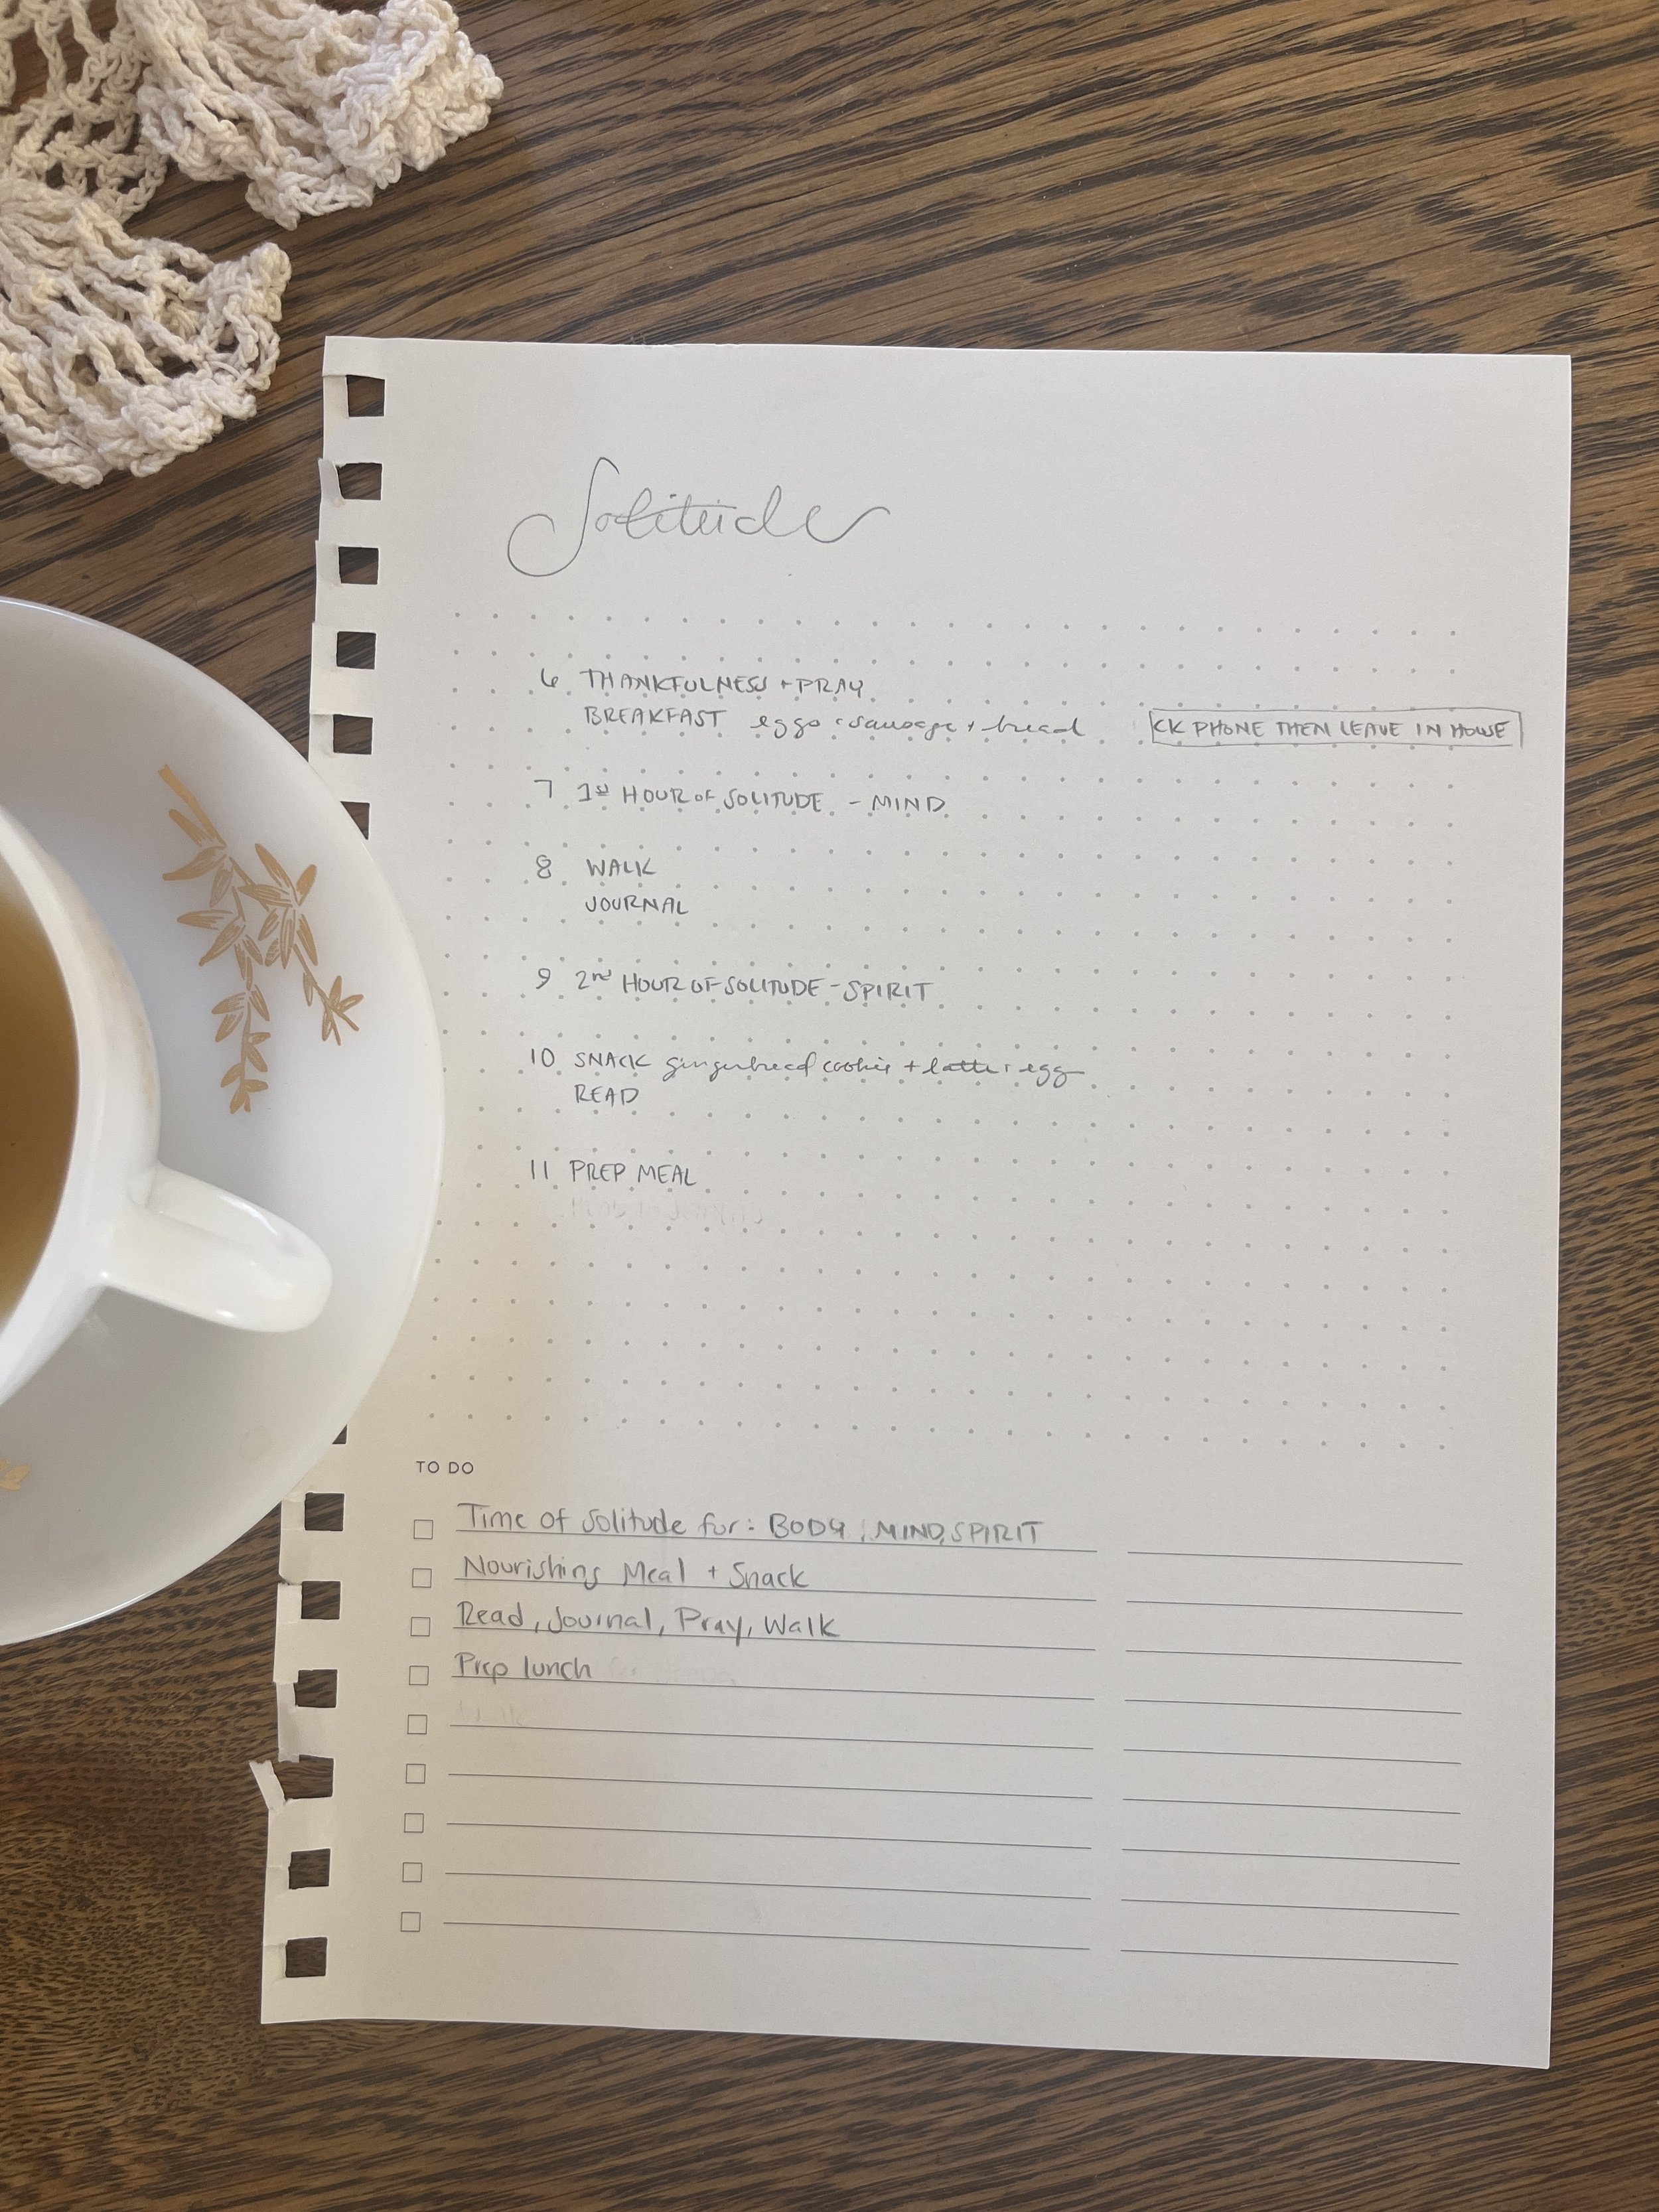 Solitude
6 THANKFULNESS + PRAY
BREAKFAST eggs + sausage + bread
CK PHONE THEN LEAVE IN HOUSE
7 1st HOUR OF SOLITUDE - MIND
8 WALK
JOURNAL
9 2nd HOUR OF SOLITUDE - SPIRIT
10 SNACK gingerbread cookies + latte + egg
READ
11 PREP MEAL
TO DO
Time of Solitude for: BODY, MIND, SPIRIT
Nourishing Meal + Snack
Read, Journal, Pray, Walk
Prep lunch